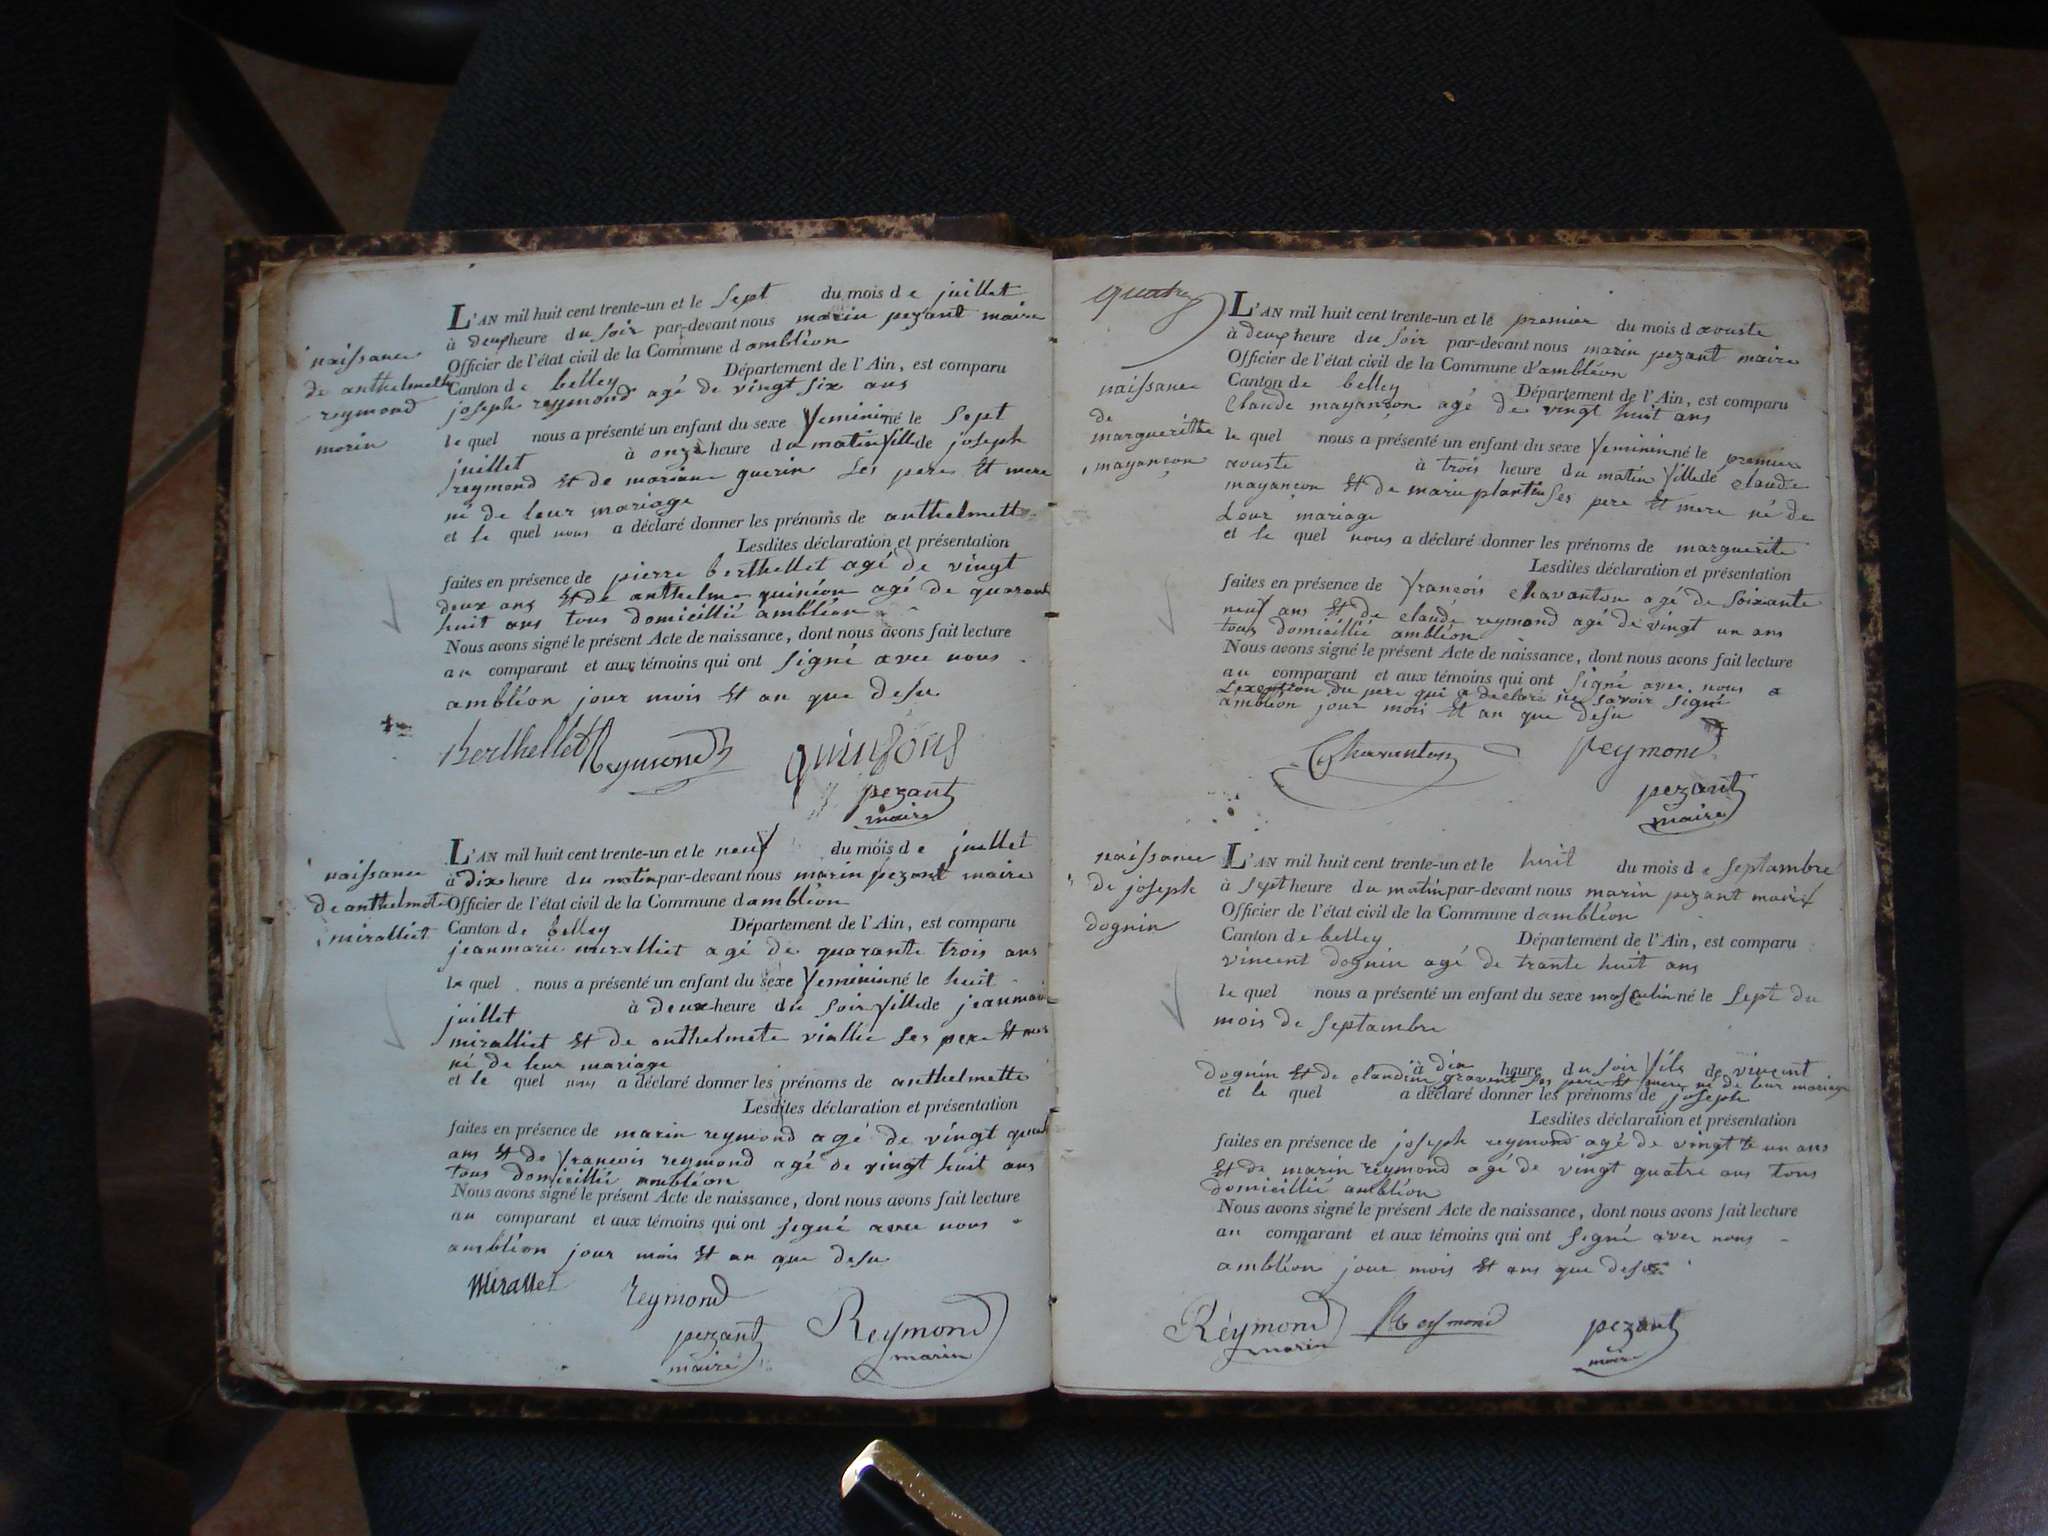 naissance
de anthelmette
reymond
morin
L'AN mil huit cent trente-un et le sept du mois de juillet
à deux heure du soir par-devant nous marin pezant maire
Officier de l'état civil de la Commune d'ambléon
Canton de belley Département de l'Ain, est comparu
joseph reymond agé de vingt six ans
le quel nous a présenté un enfant du sexe feminin né le sept
juillet à onze heure du matin fille de joseph
reymond et de mariane guerin ses pere et mere
né de leur mariage
et le quel nous a déclaré donner les prénoms de anthelmette
Lesdites déclaration et présentation
faites en présence de pierre berthellet agé de vingt
deux ans et de anthelme quinson agé de quarante
huit ans tous domicillié ambléon
Nous avons signé le présent Acte de naissance, dont nous avons fait lecture
au comparant et aux témoins qui ont signé avec nous
ambléon jour mois et an que desu
Berthellet Reymond quinsons
pezant
maire
naissance
de anthelmete
miralliet
L'AN mil huit cent trente-un et le neuf du mois de juillet
à dix heure du matin par-devant nous marin pezant maire
Officier de l'état civil de la Commune d'ambléon
Canton de belley Département de l'Ain, est comparu
jeanmarie miralliet agé de quarante trois ans
le quel nous a présenté un enfant du sexe feminin né le huit
juillet à deux heure du soir fille de jeanmarie
miralliet et de anthelmete viallie ses pere et mere
né de leur mariage
et le quel nous a déclaré donner les prénoms de anthelmette
Lesdites déclaration et présentation
faites en présence de marin reymond agé de vingt quatre
ans et de françois reymond agé de vingt huit ans
tous domicillié ambléon
Nous avons signé le présent Acte de naissance, dont nous avons fait lecture
au comparant et aux témoins qui ont segné avec nous
ambléon jour mois et an que desu
Mirallet reymond
pezant Reymond
maire marin
quatre
naissance
de
marguerithe
mayançon
L'AN mil huit cent trente-un et le premier du mois d aouste
à deux heure du soir par-devant nous marin pezant maire
Officier de l'état civil de la Commune d'ambléon
Canton de belley Département de l'Ain, est comparu
Claude mayançon agé de vingt huit ans
le quel nous a présenté un enfant du sexe feminin né le premier
aouste à trois heure du matin fille de claude
mayançon et de marie plantin ses pere et mere né de
Lour mariage
et le quel nous a déclaré donner les prénoms de marguerite
Lesdites déclaration et présentation
faites en présence de françois Chavanton agé de soixante
neuf ans et de claude reymond agé de vingt un ans
tous domicillié ambléon
Nous avons signé le présent Acte de naissance, dont nous avons fait lecture
au comparant et aux témoins qui ont signé avec nous a
Lexeption du pere qui a declaré ne savoir signé
ambléon jour mois et an que desu
Chavanton reymond
pezant
maire
naissance
de joseph
dognin
L'AN mil huit cent trente-un et le huit du mois de septambre
à sept heure du matin par-devant nous marin pezant maire
Officier de l'état civil de la Commune d'ambléon
Canton de belley Département de l'Ain, est comparu
vincent dognin agé de trante huit ans
le quel nous a présenté un enfant du sexe masculin né le sept du
mois de septambre
à dix heure du soir fils de vincent
dognin et de claudine gravent ses pere et mere né de leur mariage
et le quel a déclaré donner les prénoms de joseph
Lesdites déclaration et présentation
faites en présence de joseph reymond agé de vingt te un ans
et de marin reymond agé de vingt quatre ans tous
domicillié ambléon
Nous avons signé le présent Acte de naissance, dont nous avons fait lecture
au comparant et aux témoins qui ont signé avec nous
ambléon jour mois et ans que desus
Réymond Reymond pezant
marin maire